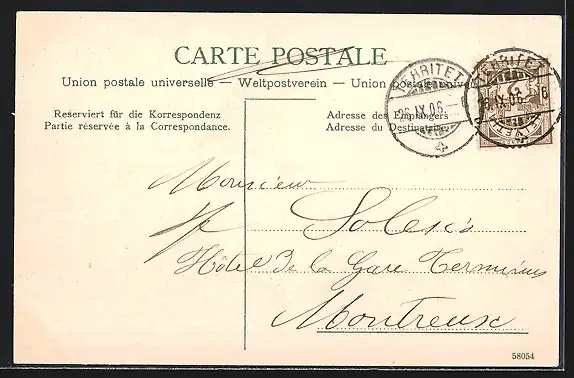 CARTE POSTALE
Union postale universelle — Weltpostverein — Union postale
Reserviert für die Korrespondenz
Partie réservée à la Correspondance.
Adresse des Empfängers
Adresse du Destinataire
TERRITET
26.IX.06.
TERRITET
26.IX.06.
HELVETIA
Monsieur
Hôtel de la Gare Terminus
Montreux
58054